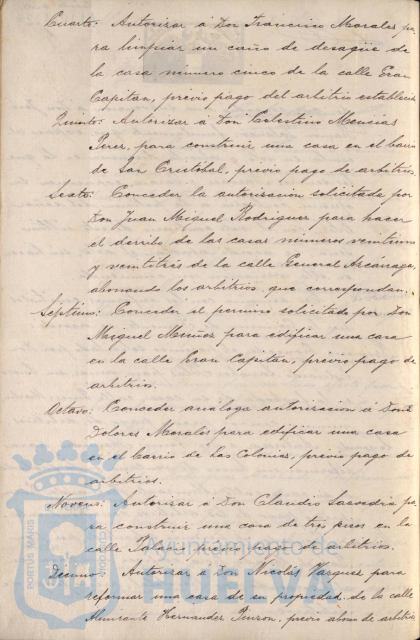 Cuarto: Autorizar á Don Francisco Morales pa
ra limpiar un caño de desagüe de
la casa número cinco de la calle Gran
Capitan, previo pago del arbitrio establecido
Quinto: Autorizar á Don Celestino Mencias
Perez, para construir una casa en el barrio
de San Cristobal, previo pago de arbitrios.
Sexto: Conceder la autorización solicitada por
Don Juan Miguel Rodriguez para hacer
el derribo de las casas números veintiuno
y veintitrés de la calle General Azcárraga,
abonando los arbitrios que correspondan.
Séptimo: Conceder el permiso solicitado por Don
Miguel Muñoz para edificar una casa
en la calle Gran Capitan, previo pago de
arbitrios.
Octavo: Conceder análoga autorizacion á Doña
Dolores Morales para edificar una casa
en el barrio de Las Colonias, previo pago de
arbitrios.
Noveno: Autorizar á Don Claudio Saavedra pa
ra construir una casa de tres pisos en la
calle Palacio previo pago de arbitrios.
Decimo: Autorizar á Don Nicolás Vazquez para
reformar una casa de su propiedad de la calle
Almirante Hernandez Pinzon, previo abono de arbitrio
PORTUS MARIS
Ayuntamiento de
HUELVA